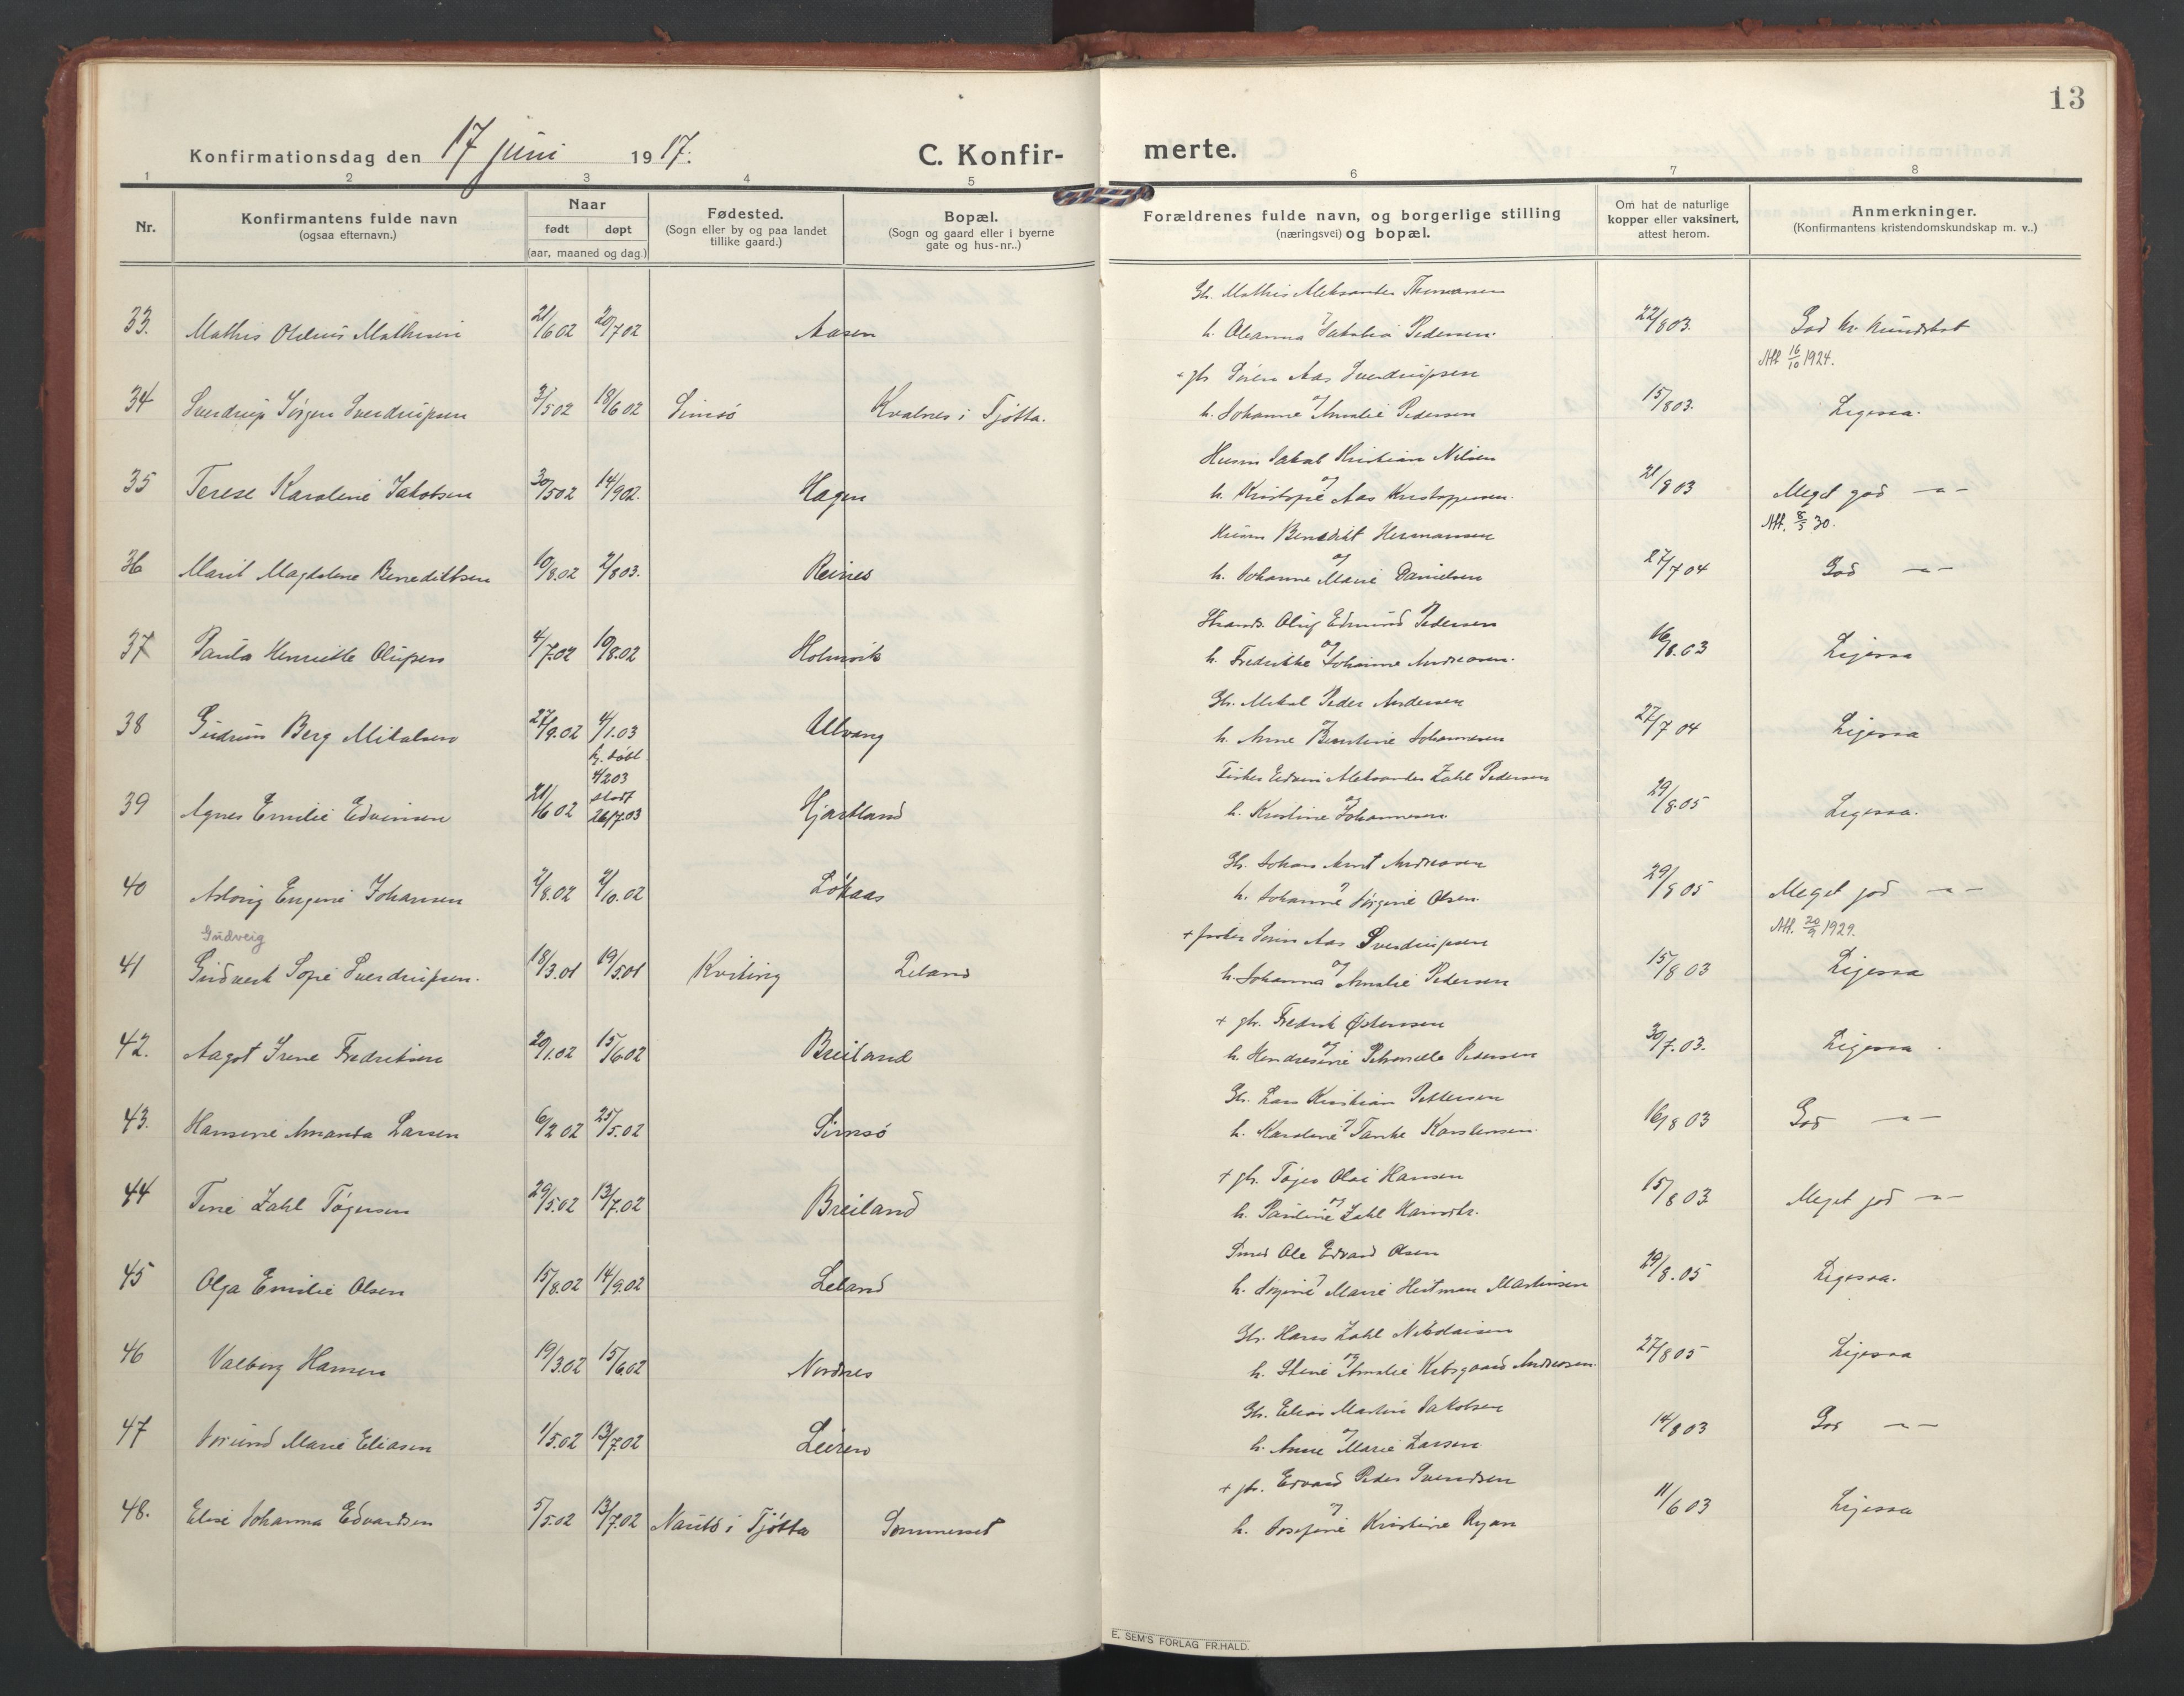 13
Konfirmationsdag den 17 juni 1917.
C. Konfir- merte.
1 2 3 4 5 6 7 8
Nr.
Konfirmantens fulde navn
(ogsaa efternavn.)
Naar
født døpt
(aar, maaned og dag.)
Fødested.
(Sogn eller by og paa landet
tillike gaard.)
Bopæl.
(Sogn og gaard eller i byerne
gate og hus-nr..)
Forældrenes fulde navn, og borgerlige stilling
(næringsvei) og bopæl.
Om hat de naturlige
kopper eller vaksinert,
attest herom.
Anmerkninger.
(Konfirmantens kristendomskundskap m. v..)
Gbr. Mathis Aleksander Thomassen
33. Mathis Oldeus Mathisen 21/6 02 20/7 02 Aasen h. Oleanna Jakobia Pedersen. 22/8 03. God kr. kundskab
Att 16/10 1924.
+ gbr Søren Aas Sverdrupsen
34 Sverdrup Jørgen Sverdrupsen 3/5 02 18/6 02 Simsø Kvalnes i Tjøtta. og h. Johanna Amalie Pedersen 15/8 03. Ligesaa.
Husm Jakob Kristian Nilsen
35 Terese Karoline Jakobsen 30/5 02 14/9 02. Hagen og h. Kristopie Aas Kristoffersen. 21/8 03 Meget god -"-
Att. 8/3 30.
Husm Benedikt Hermansen
36 Marit Magdalene Benediktsen 10/8.02 2/8 03. Reines og h. Johanne Marie Danielsen 27/7 04 God -"-
Strands. Oluf Edmund Pedersen
37 Paula Henriette Olufsen 4/7.02 10/8.02 Holmvik og h. Fredrikke Johanne Andreasen. 16/8.03 Ligesaa
Gbr. Mikal Peder Andersen
38 Gudrun Berg Mikalsen 27/9.02 4/1.03 Ulvang og h. Anne Berntine Johannesen 27/7 04 Ligesaa
hj. døbt
4/2 03
stadf
26/7.03
Fisker Edvin Aleksander Zahl Pedersen
39 Agnes Emilie Edvinsen 21/6 02 Hjartland og h. Kristine Johannesen. 29/8.05 Ligesaa.
Gbr. Johan Arnt Andreasen
40 Aslaug Eugenie Johansen 2/8.02 2/10.02 Løkaas h. Johanne Jørgine Olsen. 29/8 05 Meget god -"-
Att. 20/9 1929.
Gudveig
+ Søren Aas Sverdrupsen
41 Gudverk Sofie Sverdrupsen. 18/3.01 19/5 01 Kviting Leland og h. Johanna Amalie Pedersen 15/8 03 Ligesaa
+ gbr. Fredrik Østensen
42. Aagot Irene Fredriksen 20/1.02 15/6 02 Breiland og h. Hendresine Petronelle Pedersen 30/7.03. Ligesaa
Gbr. Lars Kristian Pettersen
43. Hansine Amanda Larsen 6/2 02 25/5.02 Simsø h. Karoline Tanke Karstensen. 16/8 03 God -"-
+ gbr. Tøger Olai Hansen
44 Tine Zahl Tøgersen 29/5.02 13/7.02 Breiland og h. Pauline Zahl 15/8 03 Meget god -"-
Smed Ole Edvard Olsen
45 Olga Emilie Olsen 15/8.02 14/9.02 Leland h. Jørgine Marie Heitman Martinsen 29/8.05 Ligesaa.
Gbr. Hans Zahl Nikolaisen
46 Valborg Hansen 19/3.02 15/6 02 Nordnes og h. Stine Amalie Andreasen. 27/8 05 Ligesaa
Gbr. Elias Martin Jakobsen
47 Jorund Marie Eliasen 1/5.02 13/7.02 Leiren og h. Anne Marie Larsen 14/8 03 God -"-
+ gbr. Edvard Peder Svendsen
48. Elise Johanna Edvardsen 5/5.02 13/7.02 Nautø i Tjøtta Sommerset og h. Josefine Kristine Ryan 11/6 03 Ligesaa
E. SEM'S FORLAG FR.HALD.